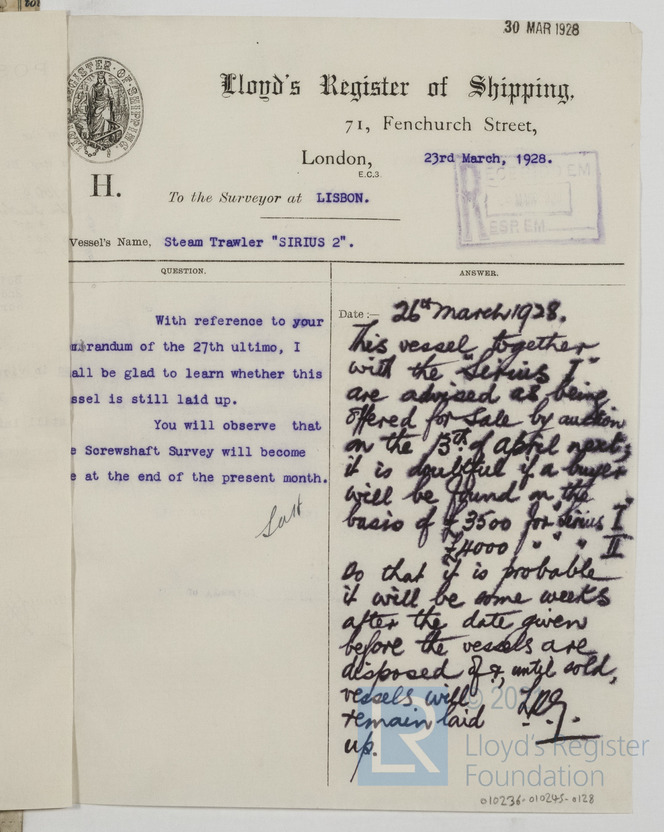 30 MAR 1928
Lloyd's Register of Shipping,
71, Fenchurch Street,
London,
E.C.3.
23rd March, 1928.
H.
To the Surveyor at LISBON.
Vessel's Name, Steam Trawler "SIRIUS 2".
QUESTION.
With reference to your
randum of the 27th ultimo, I
all be glad to learn whether this
ssel is still laid up.
You will observe that
e Screwshaft Survey will become
e at the end of the present month.
ANSWER.
Date :— 26th March 1928.
This vessel together
with the "Sirius I"
are advised as being
offered for sale by auction
on the 13th of April next;
it is doubtful if a buyer
will be found on the
basis of £3500 for "Sirius I"
£4000 " " " II
So that it is probable
it will be some weeks
after the date given
before the vessels are
disposed of &, until sold,
vessels will
remain laid
up.
Lloyd's Register
Foundation
010236-010245-0128